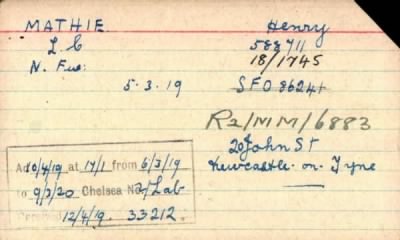 MATHIE Henry
L/C 588711
N. Fus: 18/1745
5.3.19 SFO 86241
R2/MM/6883
20 John St
Newcastle-on-Tyne
Ad 10/4/19 at 17/1 from 6/3/19
to 9/3/20 Chelsea No 2/Lab
Received 12/4/19. 33212.